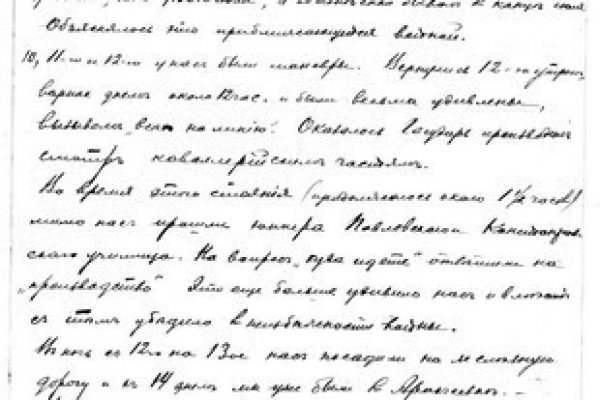 Объяснялось это приближающейся войной.
10, 11-го и 12-го у нас были маневры. Вернулись 12-го утром,
днем около 12 час. и были весьма удивлены,
вызовом "всех на линию". Оказалось Государь производил
смотр кавалерийским частям.
Во время этого стояния (продолжалось около 1½ часов)
мимо нас прошли юнкера Павловского
училища. На вопрос "куда идете" отвѣтили на
"производство" Это еще больше удивило нас и
с тем убедило в неизбежности войны.
В ночь с 12го на 13ое нас посадили на железную
дорогу и в 14 днем мы уже были в